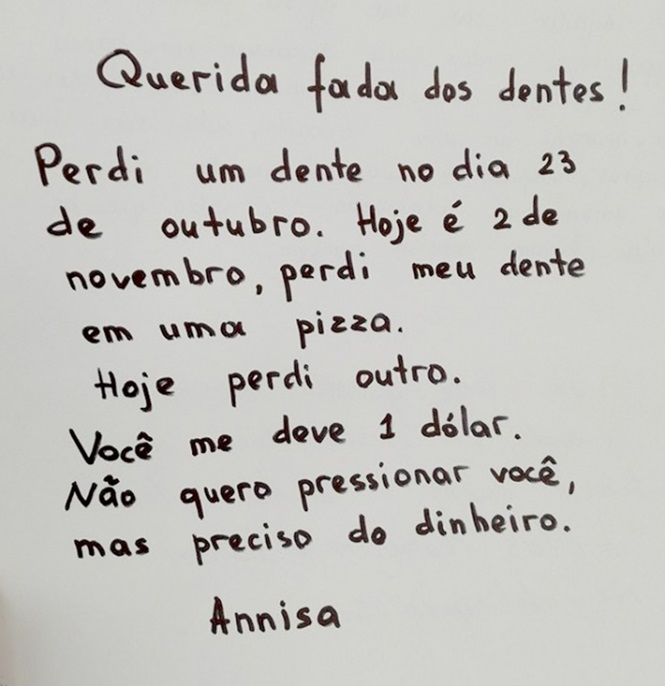 Querida fada dos dentes!
Perdi um dente no dia 23
de outubro. Hoje é 2 de
novembro, perdi meu dente
em uma pizza.
Hoje perdi outro.
Você me deve 1 dólar.
Não quero pressionar você,
mas preciso do dinheiro.
Annisa